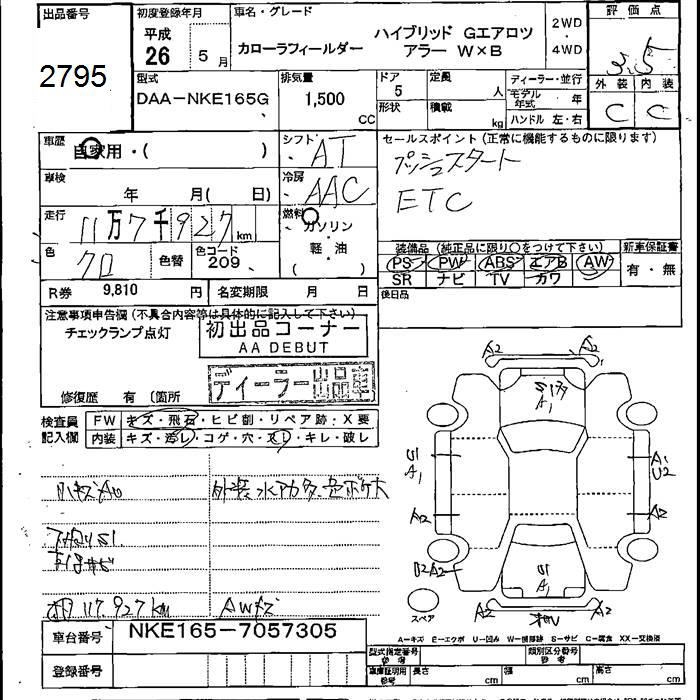 出品番号
2795
初度登録年月
平成
26 5月
車名・グレード
ハイブリッド Gエアロツ
カローラフィールダー アラー W×B
2WD
・
4WD
評価点
3.5
外装 内装
C C
型式
DAA-NKE165G
排気量
1,500
CC
ドア
5
形状
定員
人
積載
kg
ディーラー・並行
モデル年式 年
ハンドル 左・右
車歴
自家用・( )
シフト
AT
車検
年 月( 日)
冷房
AAC
走行
11万7千927km
燃料
ガソリン
・
軽・油
( )
色
クロ
色替
色コード
209
R券 9,810 円
名変期限 月 日
セールスポイント(正常に機能するものに限ります)
プッシュスタート
ETC
装備品(純正品に限り○をつけて下さい)
新車保証書
PS PW ABS エアB AW
SR ナビ TV カワ
有・無
後日品
注意事項申告欄(不具合内容等は具体的に記入して下さい)
チェックランプ点灯
初出品コーナー
AA DEBUT
ディーラー出品車
修復歴 有 (箇所
検査員
記入欄
FW キズ・飛石・ヒビ割・リペア跡・X要
内装 キズ・汚レ・コゲ・穴・スレ・キレ・破レ
外装水アカ
117.927km
AWキズ
A2 A2 A1
S179
A1
U1
A1
A1
U2
A2
A2
U2A2
U1
A1
A2 A2
スペア
A-キズ E-エクボ U-凹み W-補修跡 S-サビ C-腐食 XX-交換済
車台番号 NKE165-7057305
登録番号
型式指定番号
参考
類別区分番号
参考
車庫証明用
参考
長さ cm 幅 cm 高さ cm